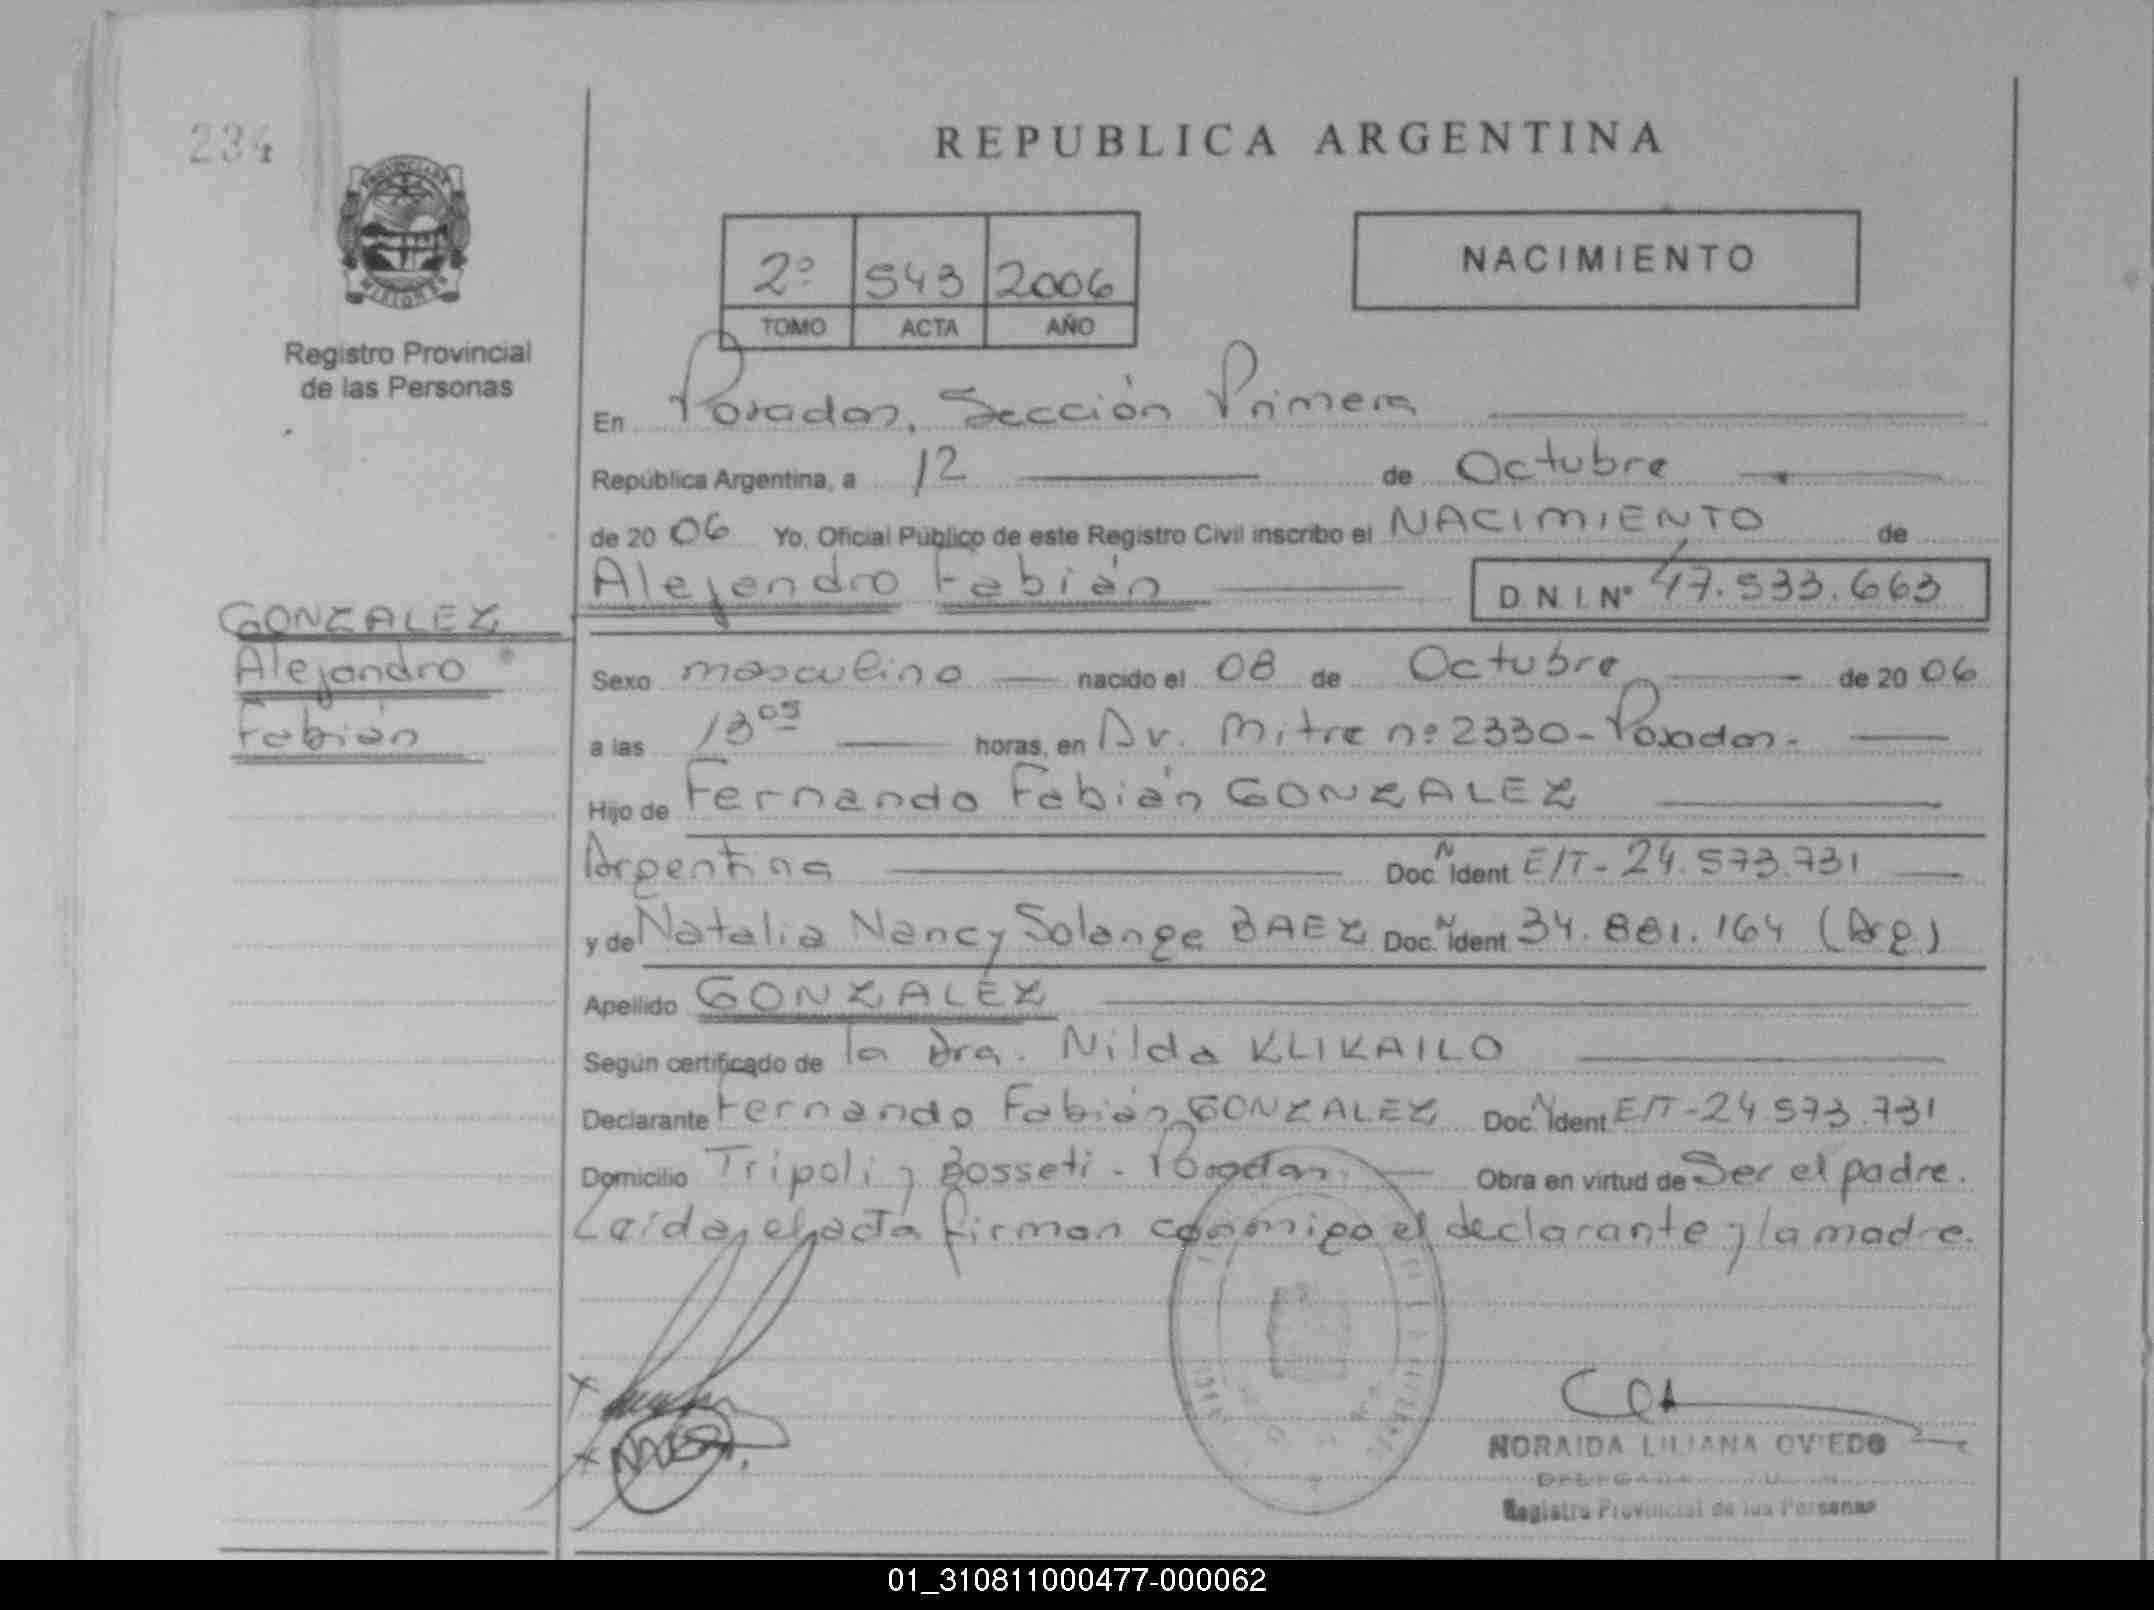 234
REPUBLICA ARGENTINA
PROVINCIA DE
MISIONES
Registro Provincial
de las Personas
2º 543 2006
TOMO ACTA AÑO
NACIMIENTO
En Posadas, Sección Primera
República Argentina, a 12 de Octubre
de 20 06 Yo, Oficial Público de este Registro Civil inscribo el NACIMIENTO de
Alejandro Fabián D N I. Nº 47.533.663
GONZALEZ
Alejandro
Fabián
Sexo masculino nacido el 08 de Octubre de 20 06
a las 13 05 horas, en Av. Mitre nº 2330 - Posadas.
Hijo de Fernando Fabián GONZALEZ
Argentina Doc. N Ident E/T - 24.573.731
y de Natalia Nancy Solange BAEZ Doc. N Ident 34.881.164 (Arg)
Apellido GONZALEZ
Según certificado de la Dra. Nilda KLIKAILO
Declarante Fernando Fabián GONZALEZ Doc. N Ident E/T - 24.573.731
Domicilio Tripoli y Bosseti - Posadas. Obra en virtud de Ser el padre.
Leída el acta firman conmigo el declarante y la madre.
NORAIDA LILIANA OVIEDO
Registro Provincial de las Personas
01_310811000477-000062